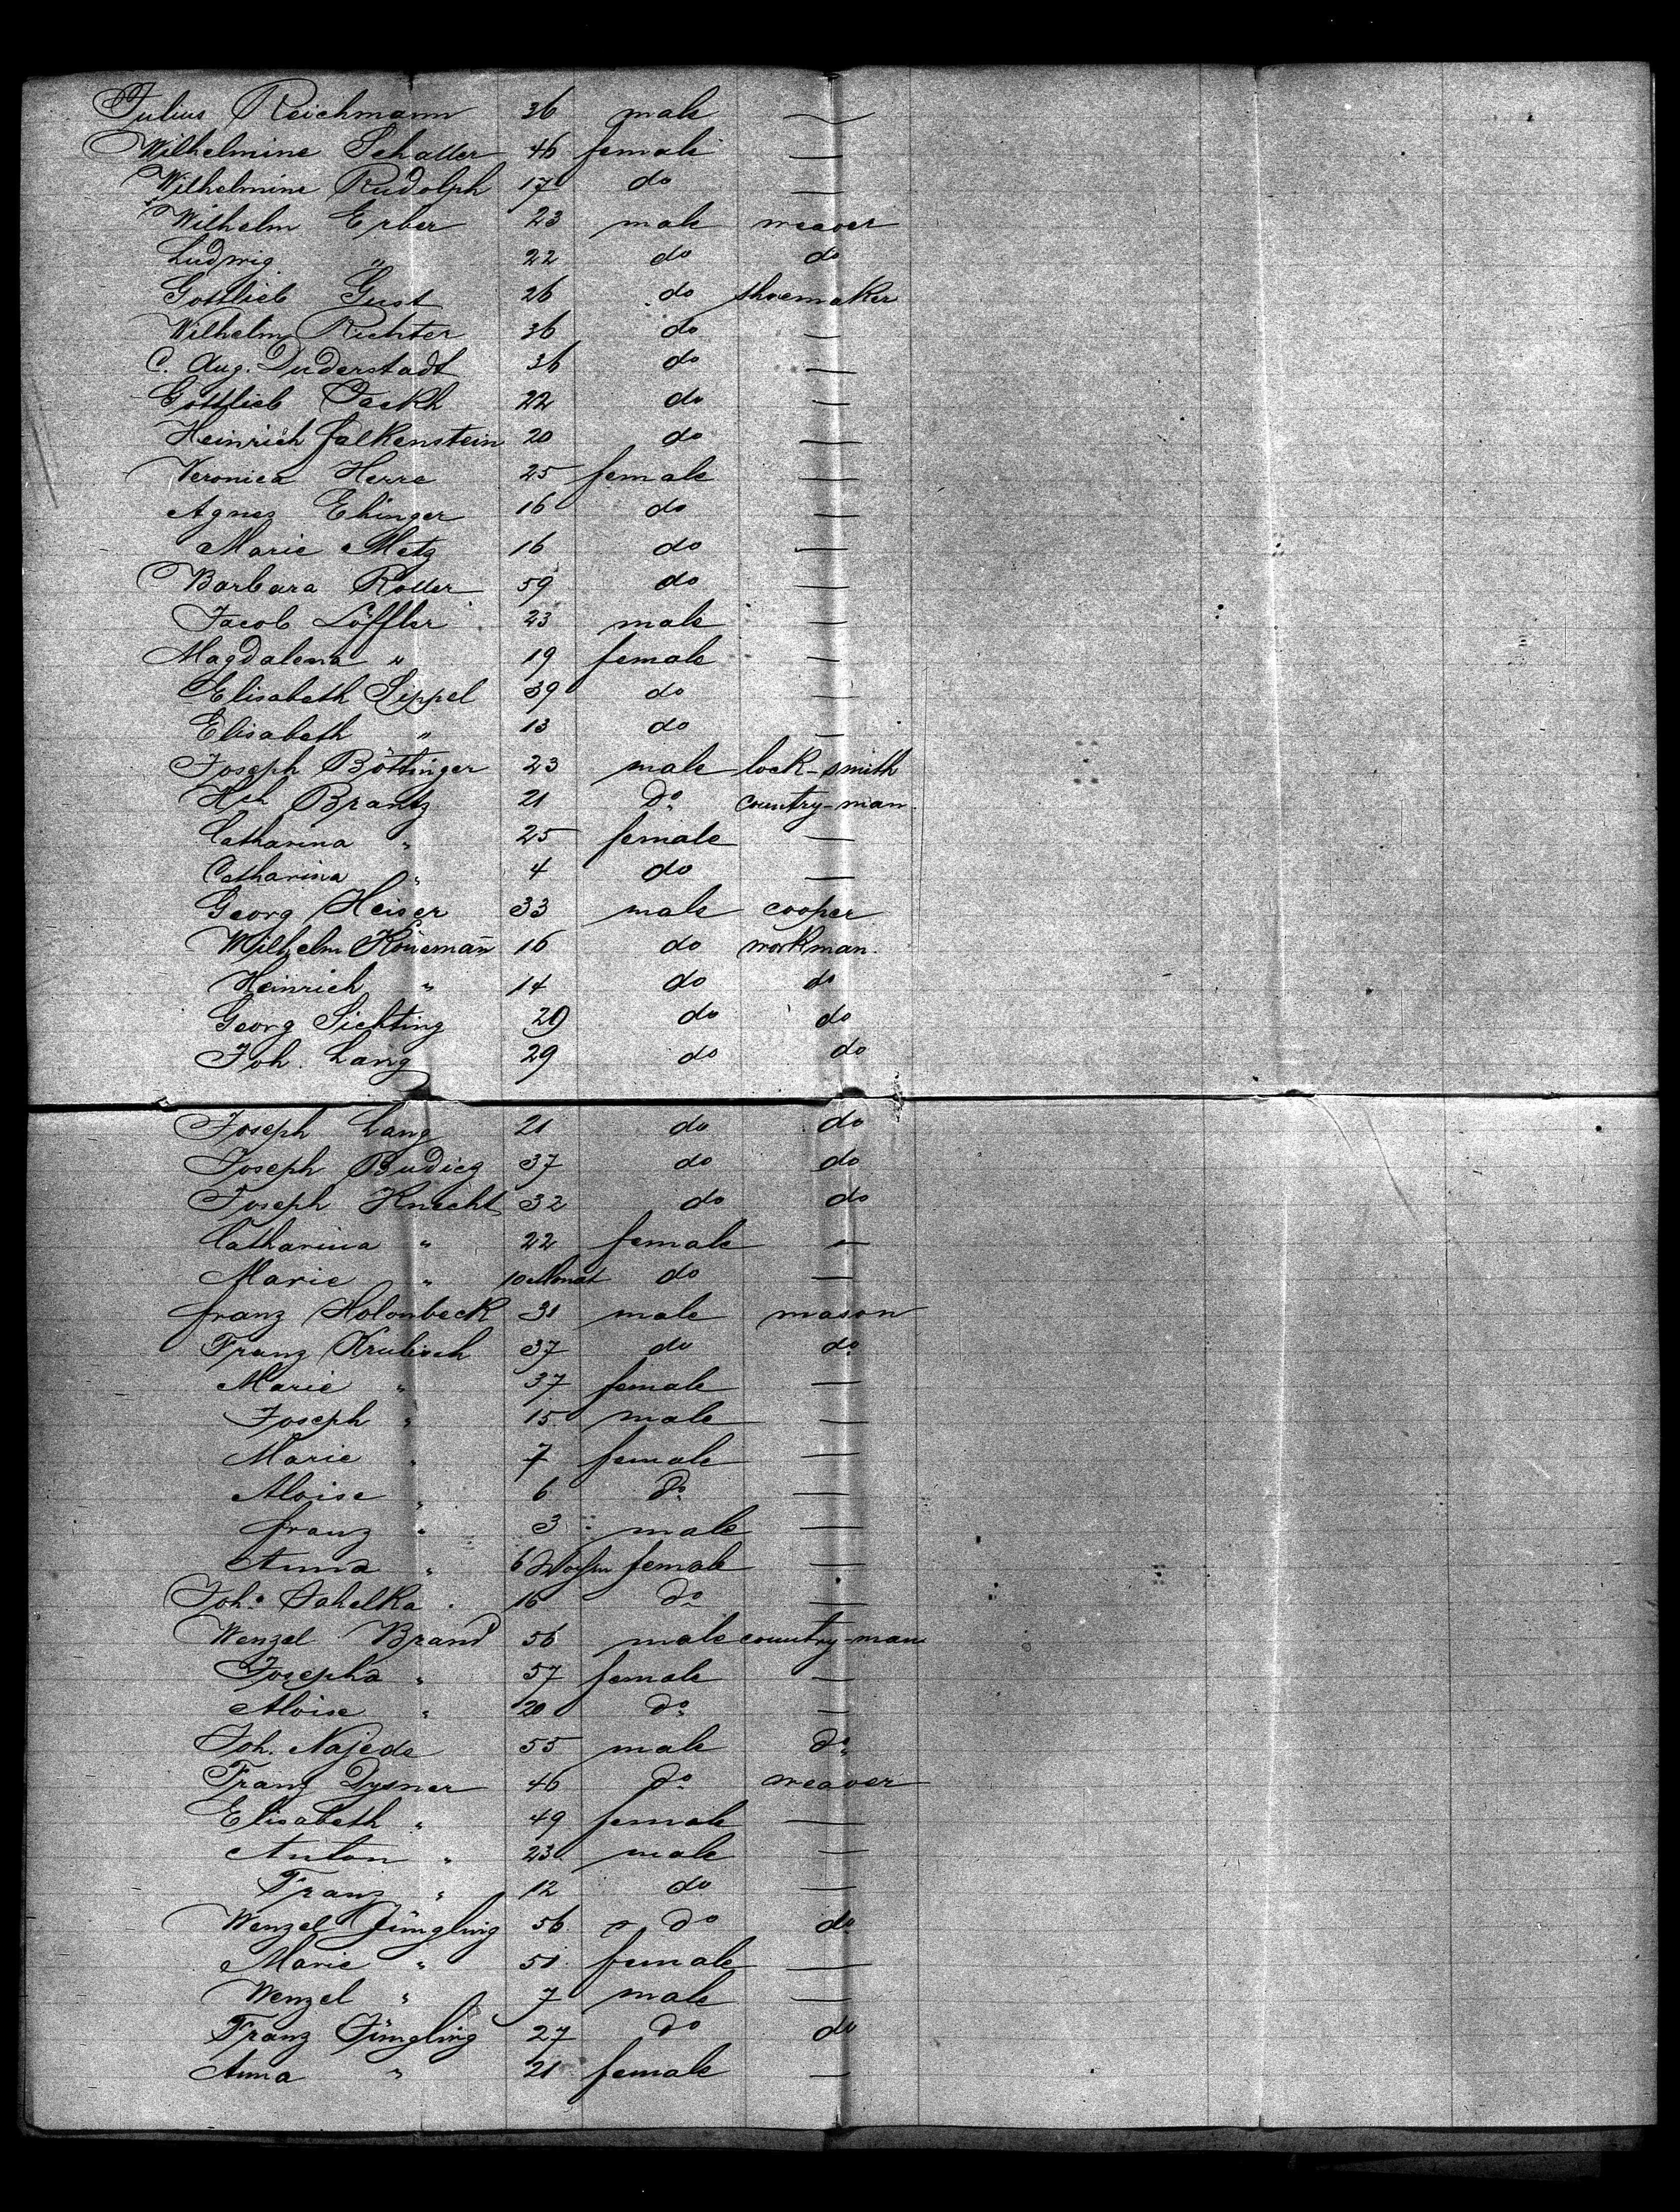 Julius Reichmann 36 male —
Wilhelmine Schaller 46 female —
Wilhelmine Rudolph 17 do —
Wilhelm Erber 23 male weaver
Ludwig " 22 do do
Gottlieb Gust 26 do shoemaker
Wilhelm Richter 36 do —
C. Aug. Duderstadt 36 do —
Gottlieb 22 do —
Heinrich Falkenstein 20 do —
Veronica Herre 25 female —
Agnes Ehinger 16 do —
Marie Metz 16 do —
Barbara Roller 59 do —
Jacob Löffler 23 male —
Magdalena " 19 female —
Elisabeth Sippel 39 do —
Elisabeth " 13 do —
Joseph Böttinger 23 male lock-smith
Hch Brantz 21 do country-man.
Catharina " 25 female —
Catharina " 4 do —
Georg Heiser 33 male cooper
Wilhelm Könemañ 16 do workman.
Heinrich " 14 do do
Georg Sichting 29 do do
Joh. Lang 29 do do
Joseph Lang 21 do do
Joseph Budicg 37 do do
Joseph Knecht 32 do do
Catharina " 22 female —
Marie " 10 Monat do —
Franz Holonbeck 31 male mason
Franz Krulisch 37 do do
Marie " 37 female —
Joseph " 15 male —
Marie " 7 female —
Aloise " 6 do —
Franz " 3 male —
Anna " 6 Wochen female —
Joh. 16 do —
Wenzel Brand 56 male country-man
Josepha " 57 female —
Aloise " 20 do —
Joh. Najede 55 male do
Franz Dysner 46 do weaver
Elisabeth " 49 female —
Anton " 23 male —
Franz " 12 do —
Wenzel Jüngling 56 do do
Marie " 51 female —
Wenzel " 7 male —
Franz Jüngling 27 do do
Anna " 21 female —